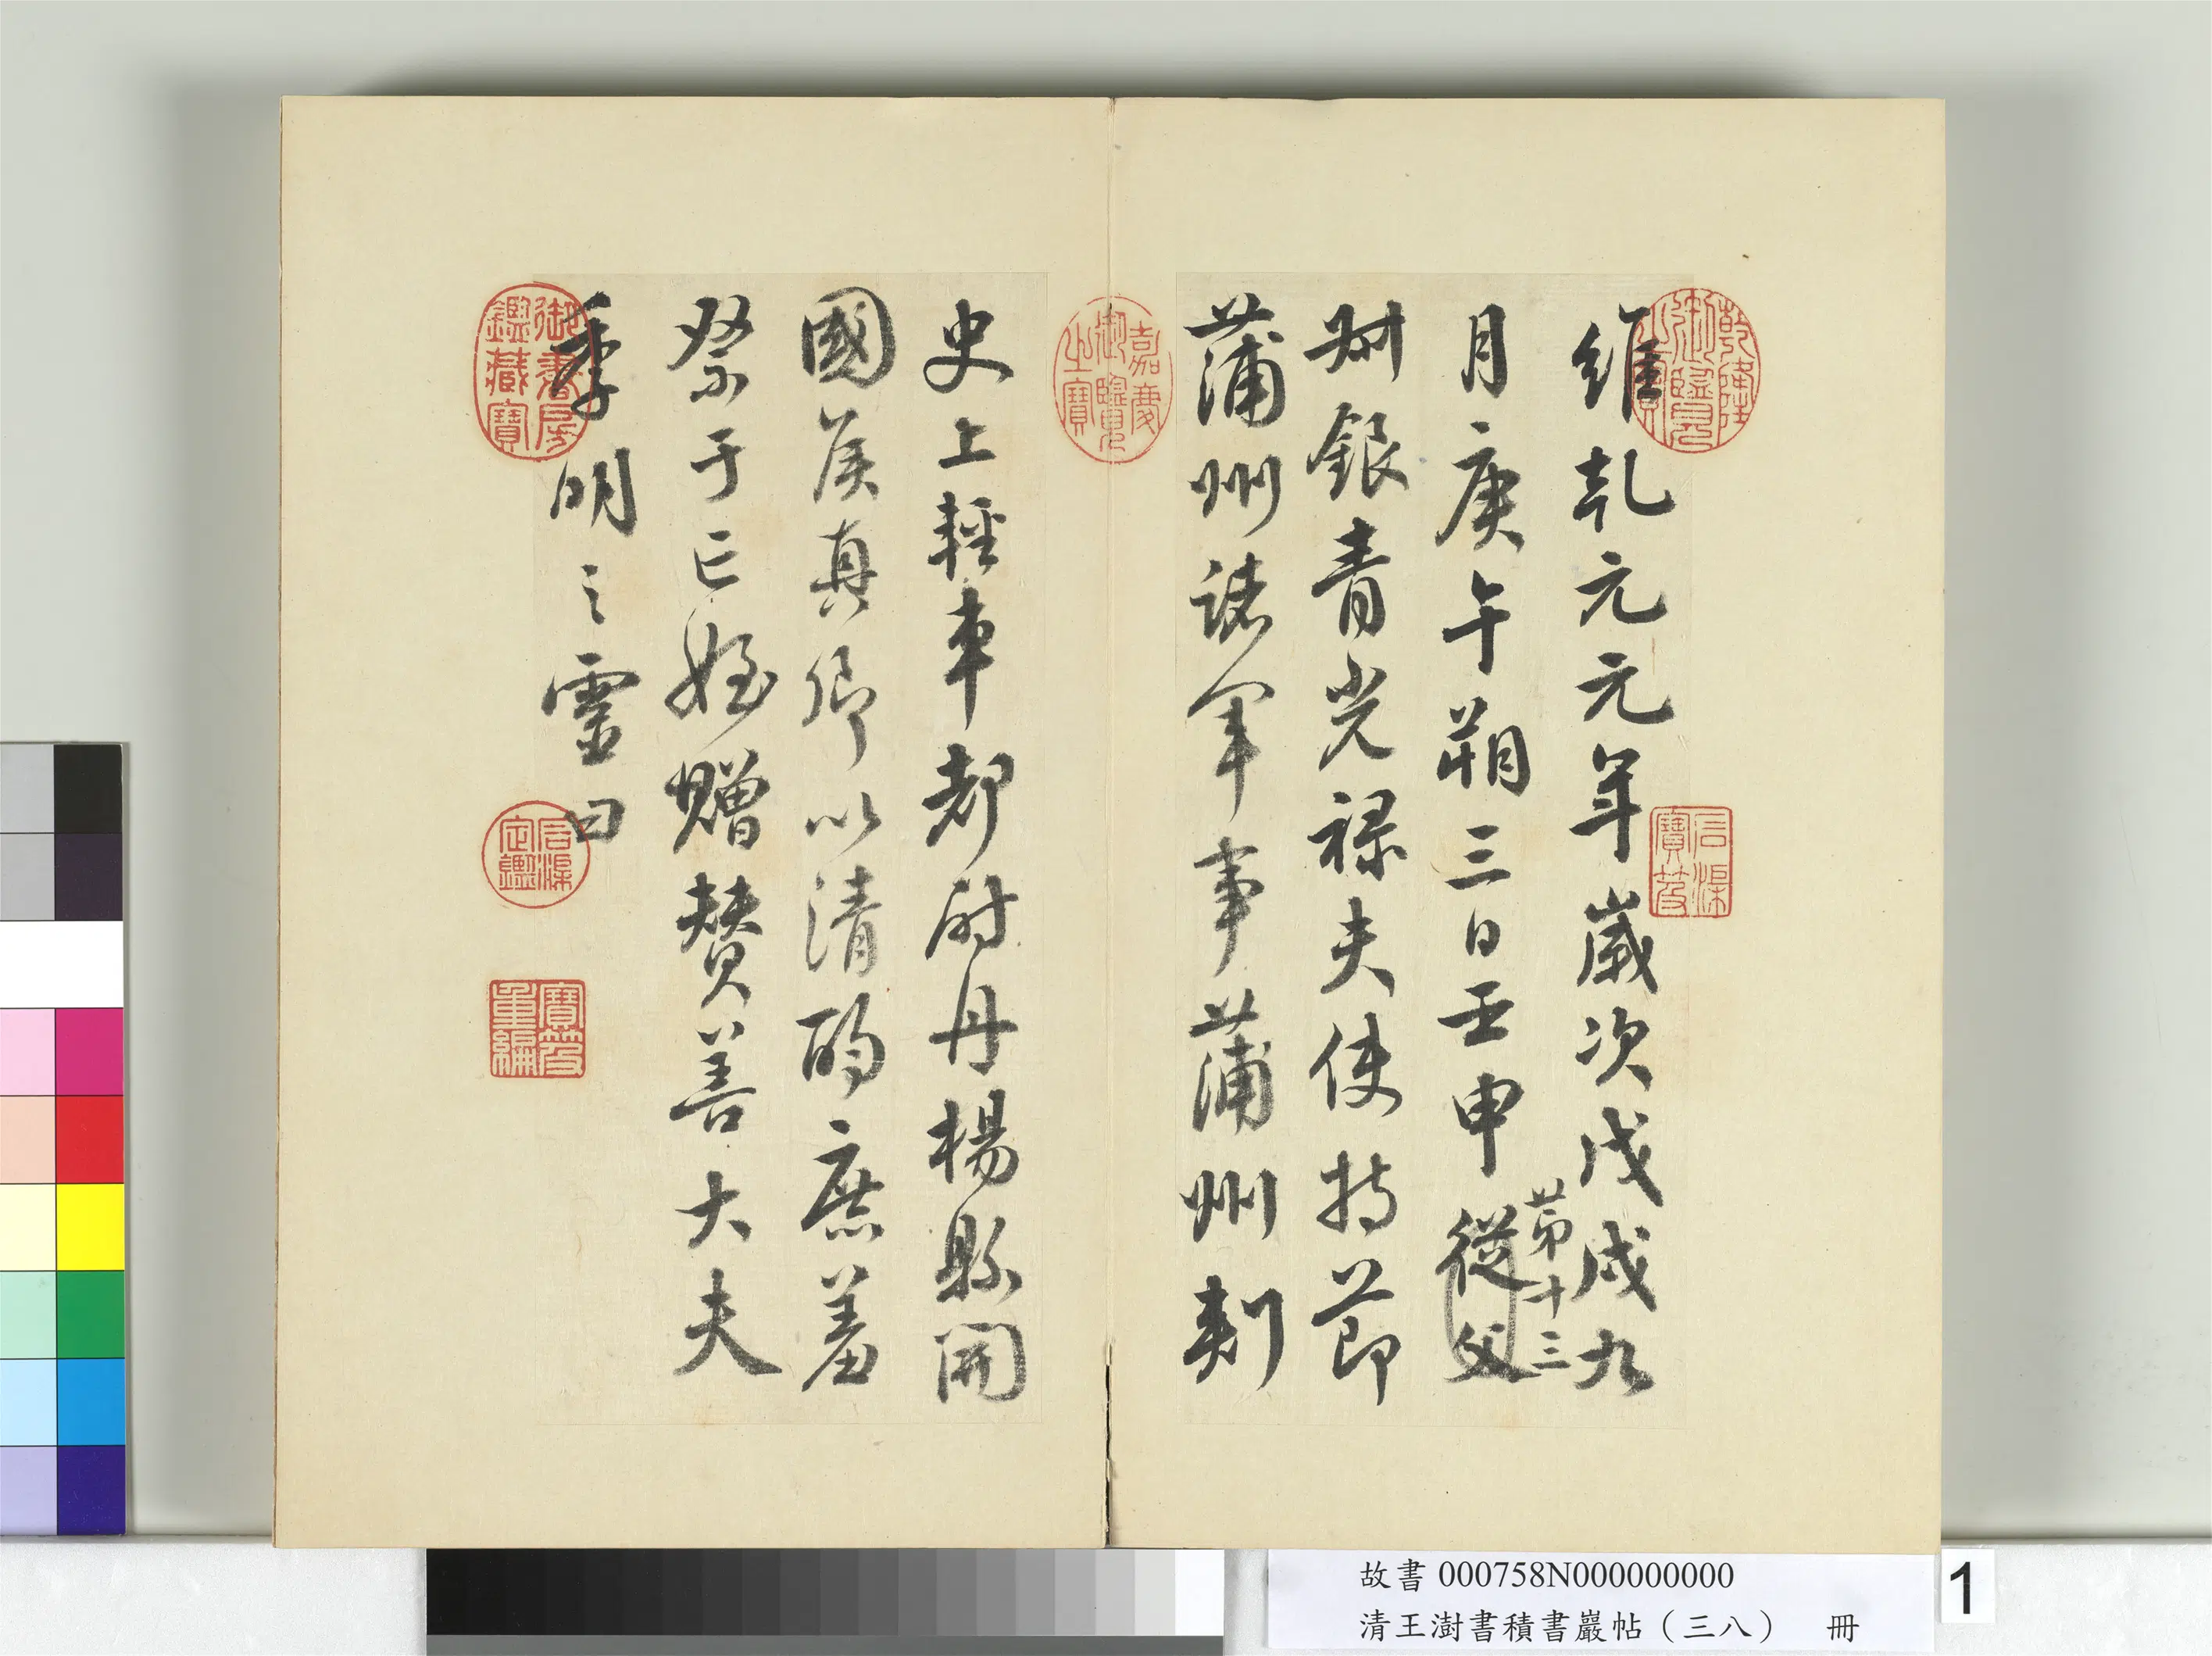 維乾元元年歲次戊戌九
月庚午朔三日壬申從父
第十三
叔銀青光祿夫使持節
蒲州諸軍事蒲州刺
史上輕車都尉丹楊縣開
國侯真卿以清酌庶羞
祭于亡姪贈贊善大夫
季明之靈曰
乾隆御覽之寶
石渠寶笈
嘉慶御覽之寶
御書房鑑藏寶
石渠定鑑
寶笈重編
故書 000758N000000000
清王澍書積書巖帖（三八） 冊
1